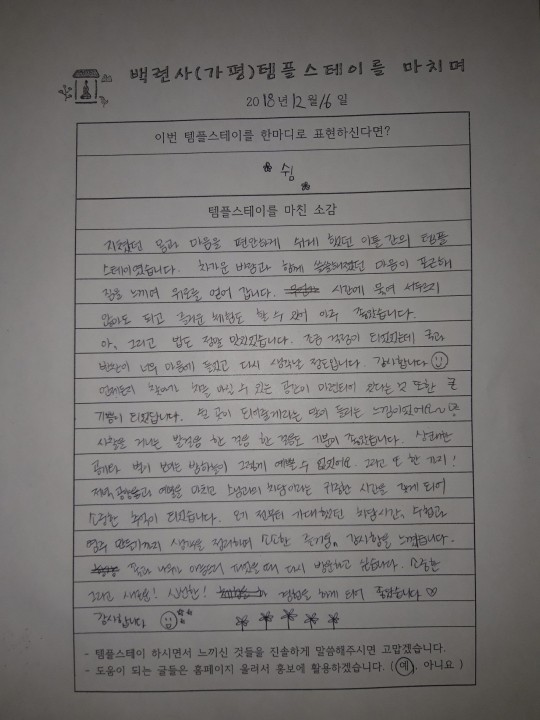 백련사(가평)템플스테이를 마치며
2018년 12월 16일
이번 템플스테이를 한마디로 표현하신다면?
쉼
템플스테이를 마친 소감
지쳤던 몸과 마음을 편안하게 쉬게 했던 이틀 간의 템플
스테이였습니다. 차가운 바람과 함께 쓸쓸해졌던 마음이 포근해
짐을 느끼며 위로를 얻어 갑니다. 시간에 쫓겨 서두르지
않아도 되고 즐거운 체험도 할 수 있어 아주 좋았습니다.
아, 그리고 밥도 정말 맛있었습니다. 조금 걱정이 되었었는데 국과
반찬이 너무 마음에 들었고 다시 생각날 정도입니다. 감사합니다
언제든지 차를 마실 수 있는 공간이 마련되어 있다는 것 또한 큰
기쁨이 되었습니다.
사찰을 거니는 발걸음 한 걸음 한 걸음도 기분이 좋았습니다.
밤하늘이 그렇게 예쁠 수 없었어요. 그리고 또 한 가지!
예불을 마치고 스님과의 차담이라는 귀중한 시간을 갖게 되어
소중한 추억이 되었습니다. 오기 전부터 기대했던 차담시간,
염주 만들기까지 소소한 즐거움, 감사함을 느꼈습니다.
때 다시 방문하고 싶습니다. 소중한
그리고 새로운! 신선한! 경험을 하게 되어 좋았습니다 ♡
감사합니다
- 템플스테이 하시면서 느끼신 것들을 진솔하게 말씀해주시면 고맙겠습니다.
- 도움이 되는 글들은 홈페이지 올려서 홍보에 활용하겠습니다. ( 예, 아니요 )